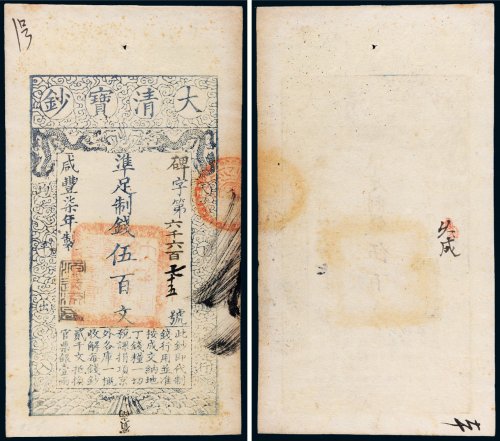 大清寶鈔
天下通行
碑字第六千六百七十五號
準足制錢伍百文
咸豐柒年製
均平出入
此鈔即代制
錢行用並准
按成交納地
丁錢糧一切
稅課捐項京
外各庫一概
收解每錢鈔
貳千文抵換
官票銀壹兩